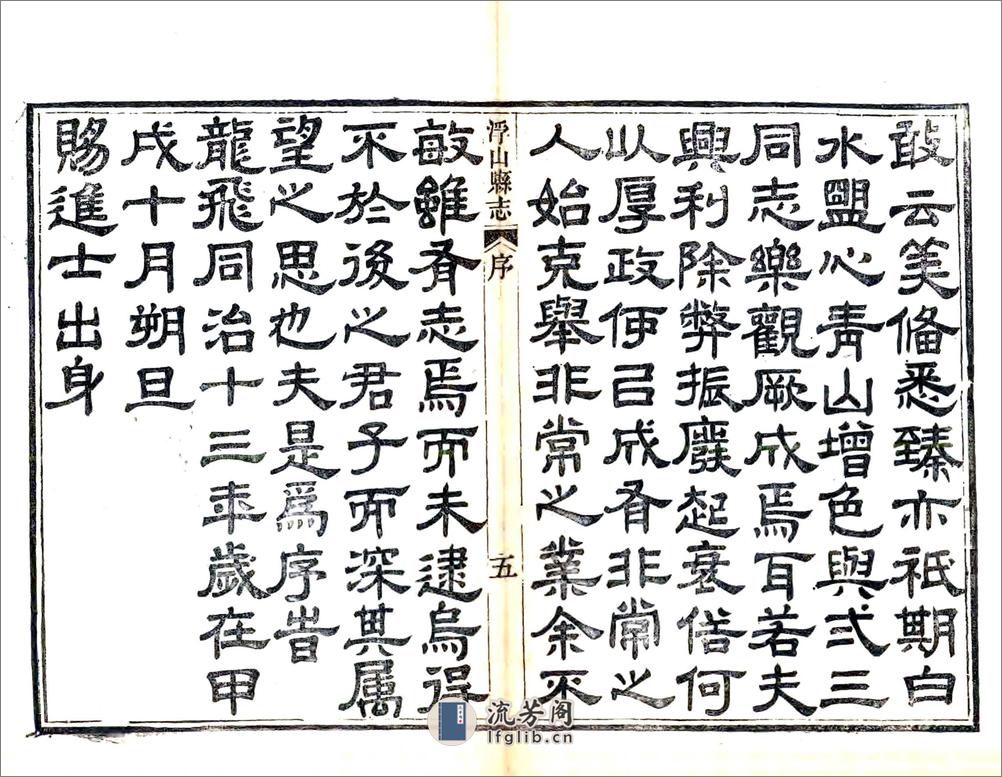 敢云美備悉臻亦祇期白
水盟心青山增色與弍三
同志樂觀厥成焉耳若夫
興利除弊振廢起衰偣何
以厚政何㠯成有非常之
人始克舉非常之業余不
浮山縣志 序 五
敏雖有志焉而未逮烏得
不於後之君子而深其属
望之思也夫是爲序旹
龍飛同治十三年歲在甲
戌十月朔旦
賜進士出身
流芳阁
lfglib.cn